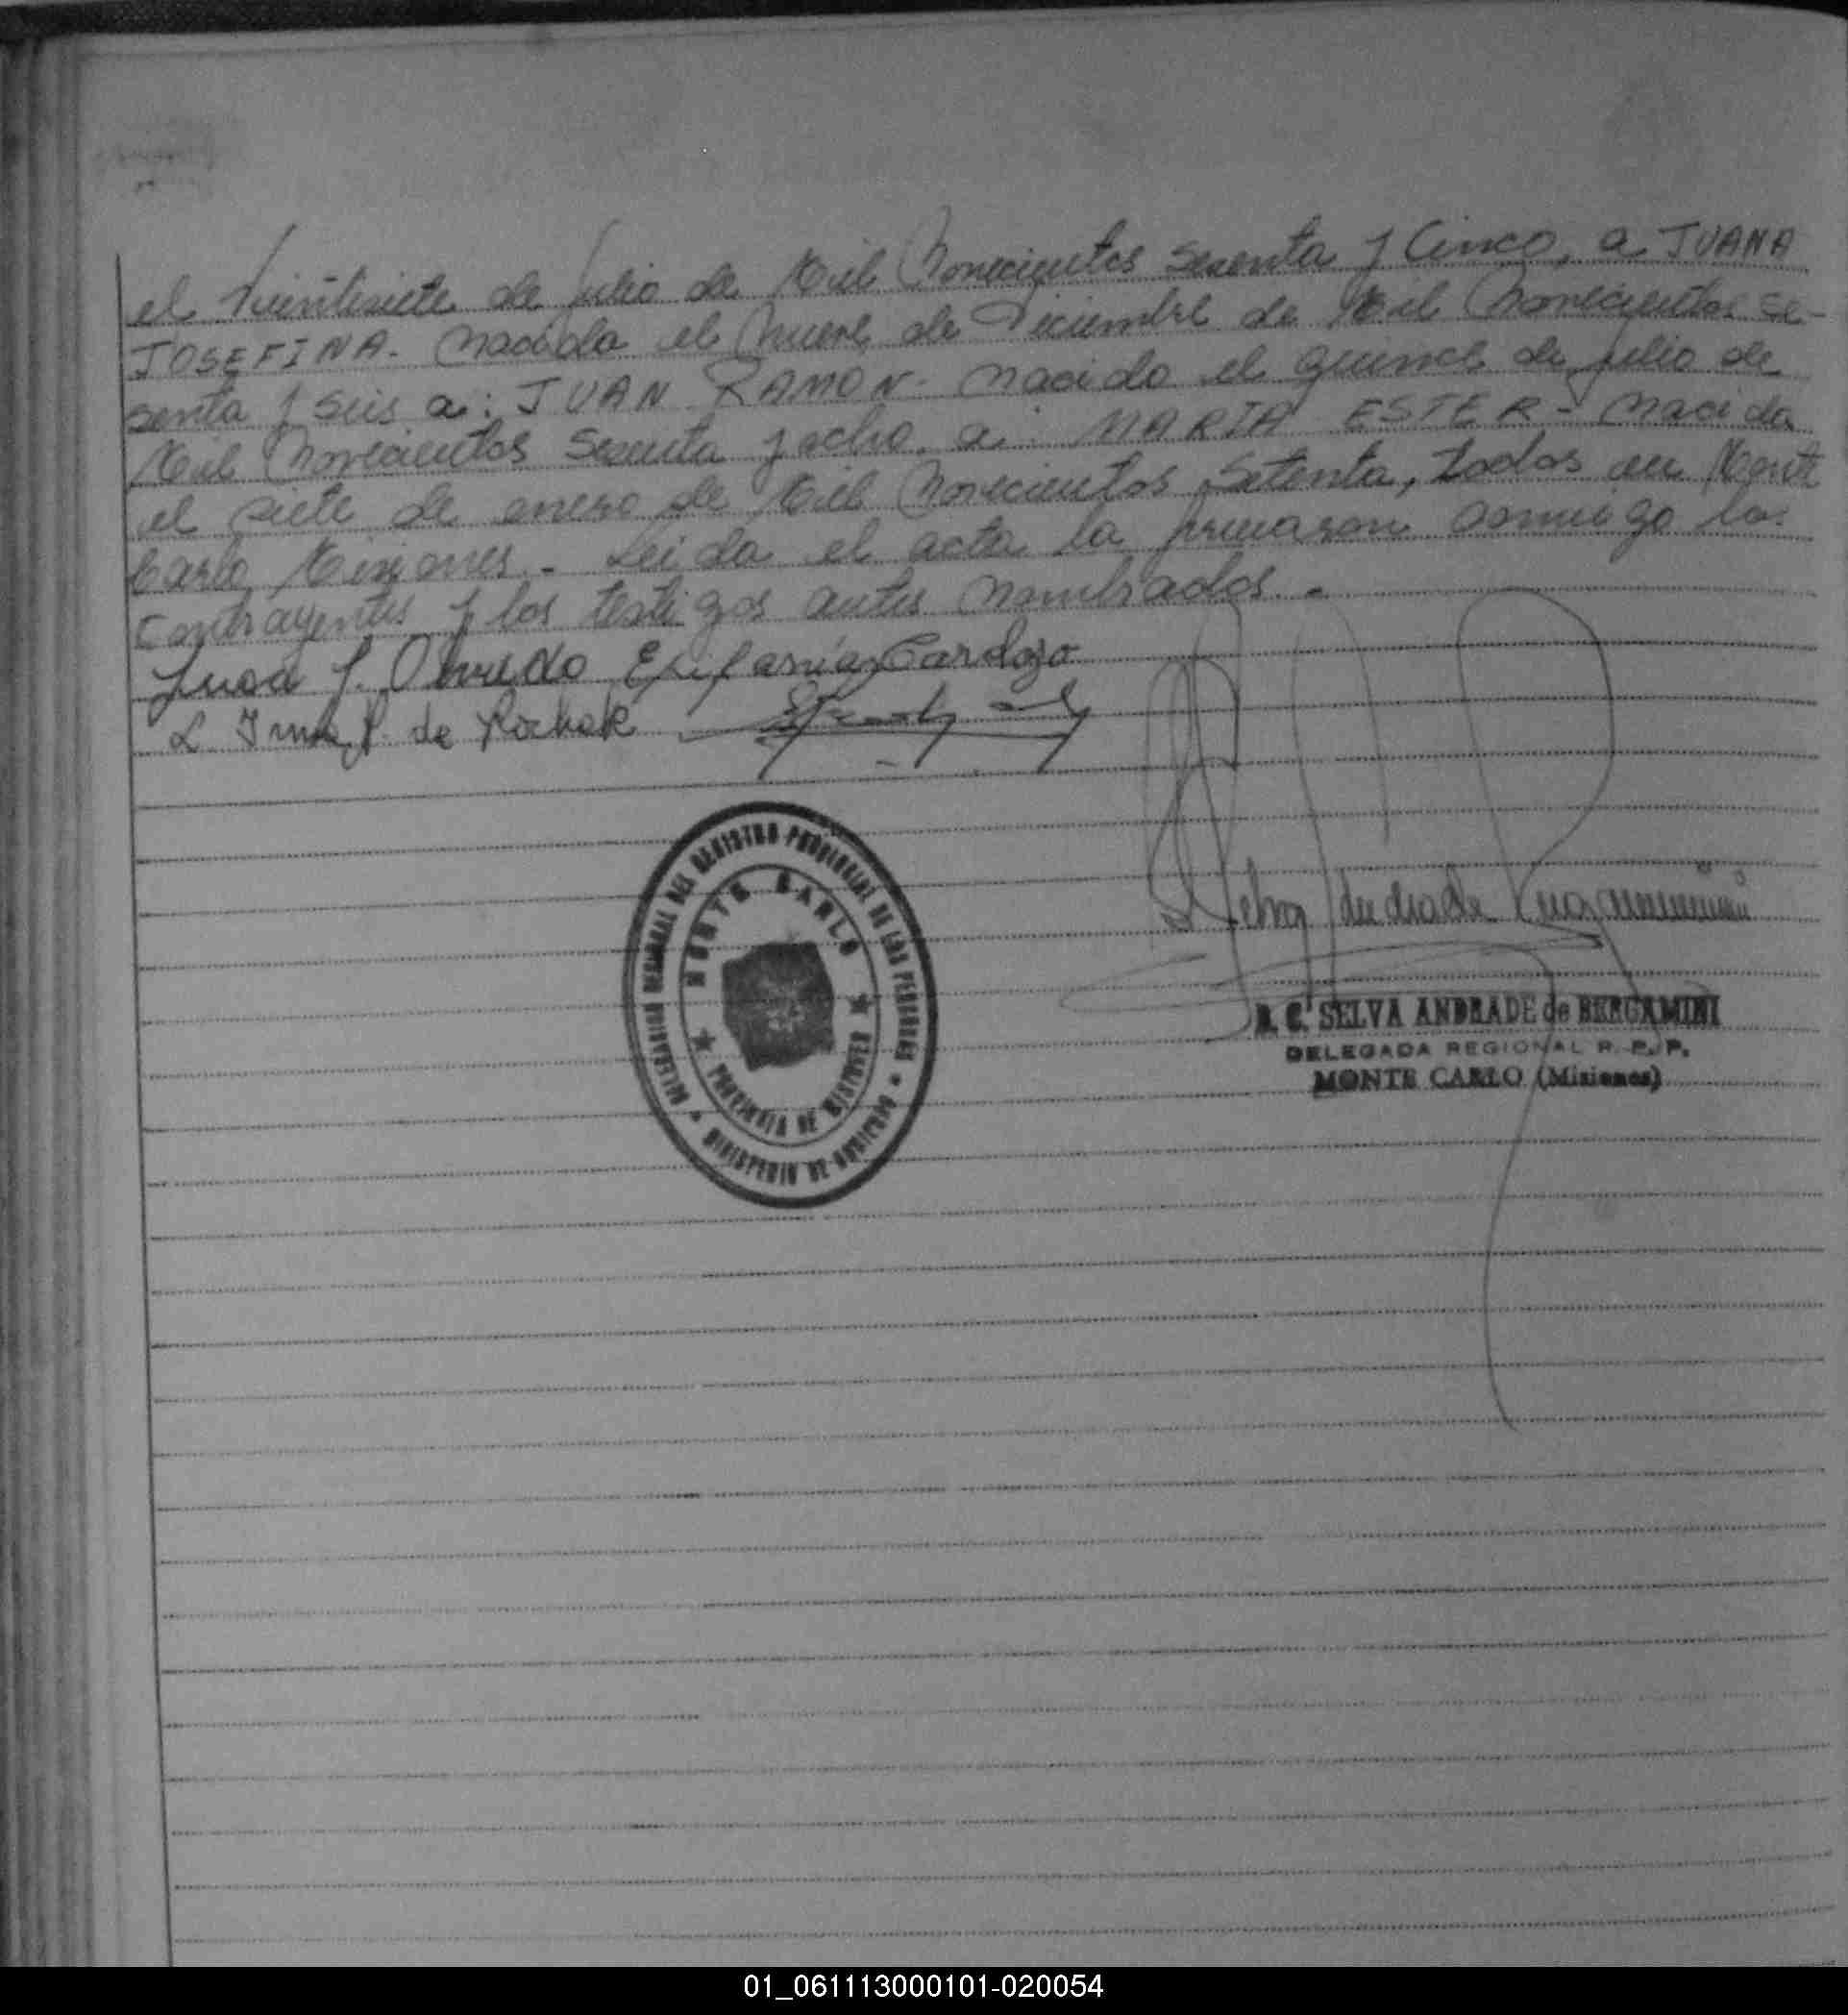 el veintisiete de julio de Mil Novecientos sesenta y Cinco, a JUANA
JOSEFINA. Nacida el Nueve de Diciembre de Mil Novecientos se-
senta y seis a: JUAN RAMON. Nacido el quince de julio de
Mil Novecientos Sesenta y ocho, a: MARIA ESTER - Nacida
el siete de enero de Mil Novecientos Setenta, todos en Monte
Carlo Misiones. - Leida el acta la firmaron conmigo los
Contrayentes y los testigos antes Nombrados. -
Olmedo Epifania Cardozo
de
DELEGACION REGIONAL DEL REGISTRO PROVINCIAL DE LAS PERSONAS
MONTE CARLO
PROVINCIA DE MISIONES
MINISTERIO DE GOBIERNO
Selva Andrade Bergamini
SELVA ANDRADE de BERGAMINI
DELEGADA REGIONAL R. P. P.
MONTE CARLO (Misiones)
01_061113000101-020054